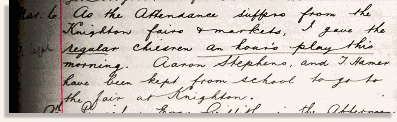 Mar. 6. As the Attendance suffers from the
Knighton fairs & markets, I gave the
regular children an hour's play this
morning. Aaron Stephens, and T. Hamer
have been kept from school to go to
the fair at Knighton.
in the Afternoon